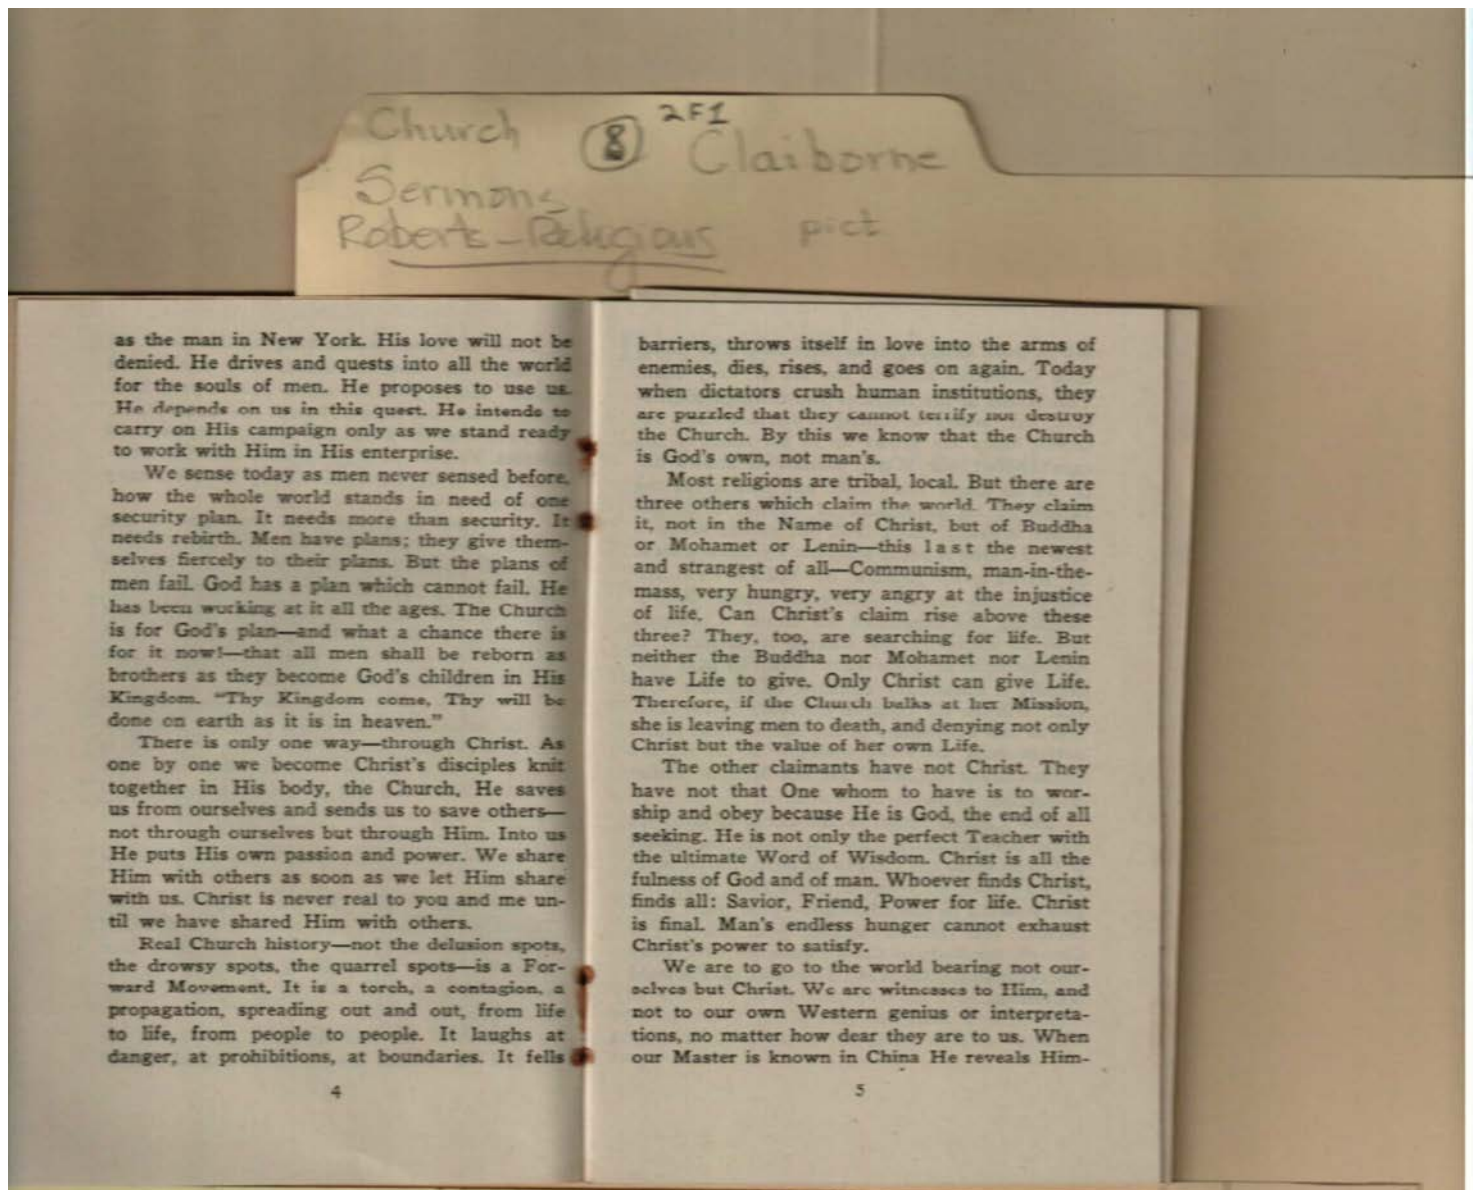 Church ⑧ 2F1 Claiborne
Sermons
Roberts-Religious pict
as the man in New York. His love will not be
denied. He drives and quests into all the world
for the souls of men. He proposes to use us.
He depends on us in this quest. He intends to
carry on His campaign only as we stand ready
to work with Him in His enterprise.
We sense today as men never sensed before,
how the whole world stands in need of one
security plan. It needs more than security. It
needs rebirth. Men have plans; they give them-
selves fiercely to their plans. But the plans of
men fail. God has a plan which cannot fail. He
has been working at it all the ages. The Church
is for God's plan—and what a chance there is
for it now!—that all men shall be reborn as
brothers as they become God's children in His
Kingdom. "Thy Kingdom come, Thy will be
done on earth as it is in heaven."
There is only one way—through Christ. As
one by one we become Christ's disciples knit
together in His body, the Church, He saves
us from ourselves and sends us to save others—
not through ourselves but through Him. Into us
He puts His own passion and power. We share
Him with others as soon as we let Him share
with us. Christ is never real to you and me un-
til we have shared Him with others.
Real Church history—not the delusion spots,
the drowsy spots, the quarrel spots—is a For-
ward Movement. It is a torch, a contagion, a
propagation, spreading out and out, from life
to life, from people to people. It laughs at
danger, at prohibitions, at boundaries. It fells
4
barriers, throws itself in love into the arms of
enemies, dies, rises, and goes on again. Today
when dictators crush human institutions, they
are puzzled that they cannot terrify nor destroy
the Church. By this we know that the Church
is God's own, not man's.
Most religions are tribal, local. But there are
three others which claim the world. They claim
it, not in the Name of Christ, but of Buddha
or Mohamet or Lenin—this last the newest
and strangest of all—Communism, man-in-the-
mass, very hungry, very angry at the injustice
of life. Can Christ's claim rise above these
three? They, too, are searching for life. But
neither the Buddha nor Mohamet nor Lenin
have Life to give. Only Christ can give Life.
Therefore, if the Church balks at her Mission,
she is leaving men to death, and denying not only
Christ but the value of her own Life.
The other claimants have not Christ. They
have not that One whom to have is to wor-
ship and obey because He is God, the end of all
seeking. He is not only the perfect Teacher with
the ultimate Word of Wisdom. Christ is all the
fulness of God and of man. Whoever finds Christ,
finds all: Savior, Friend, Power for life. Christ
is final. Man's endless hunger cannot exhaust
Christ's power to satisfy.
We are to go to the world bearing not our-
selves but Christ. We are witnesses to Him, and
not to our own Western genius or interpreta-
tions, no matter how dear they are to us. When
our Master is known in China He reveals Him-
5